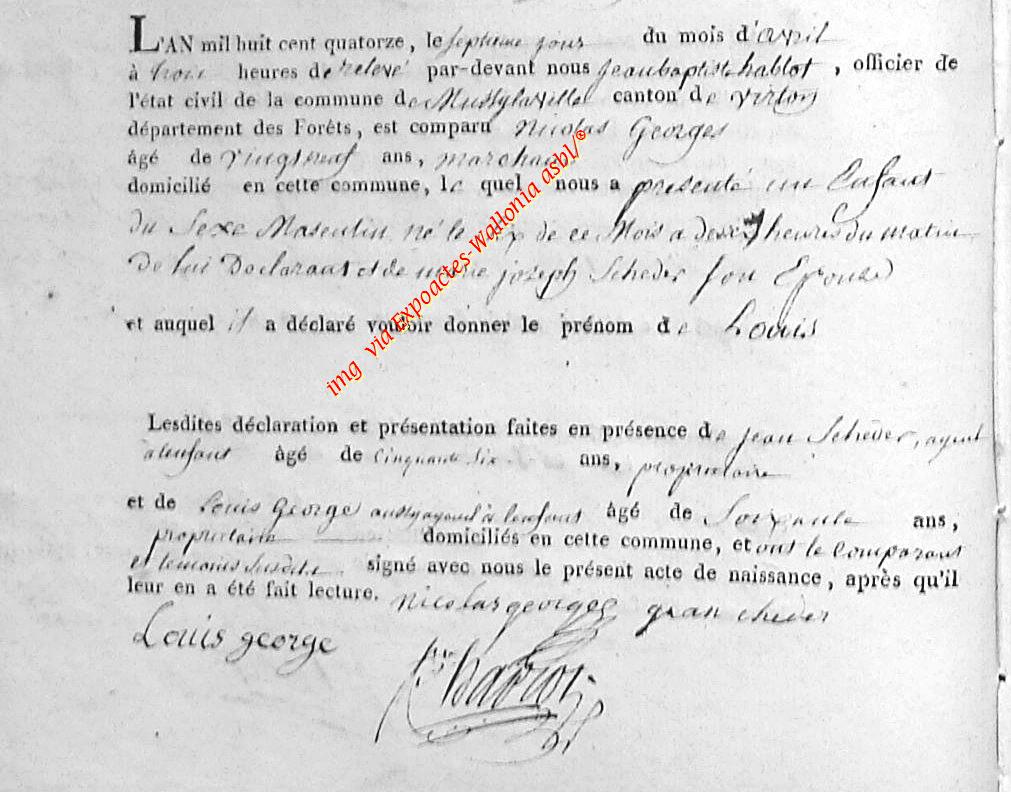 L'AN mil huit cent quatorze, le septieme jour du mois d'avril
à trois heures de relevé par-devant nous jean baptiste hablot, officier de
l'état civil de la commune de Mussylaville canton de virton
département des Forêts, est comparu Nicolas Georges
âgé de vingt neuf ans, marchand
domicilié en cette commune, le quel nous a presenté un Enfant
du Sexe Masculin né le six de ce Mois a deux heures du matin
de lui Declarant et de marie joseph Scheder son Epouse
et auquel il a déclaré vouloir donner le prénom de Louis
Lesdites déclaration et présentation faites en présence de jean Scheder, ayeul
a lenfant âgé de Cinquante six ans, proprietaire
et de Louis George aussy ayeul a lenfant âgé de Soixante ans,
proprietaire domiciliés en cette commune, et ont le Comparant
et temoins susdits signé avec nous le présent acte de naissance, après qu'il
leur en a été fait lecture. Nicolas georges jean cheder
Louis george
img via Expoactes-Wallonia asbl/®